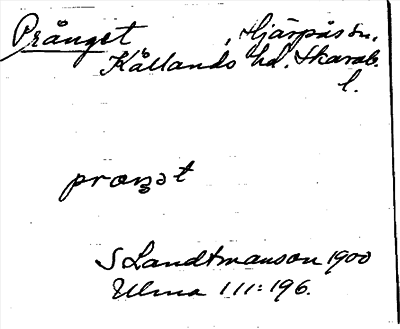 Prånget, Hjärpås sn.
Kållands hd. Skarab.
l.
praŋət
S Landtmanson 1900
Ulma 111:196.